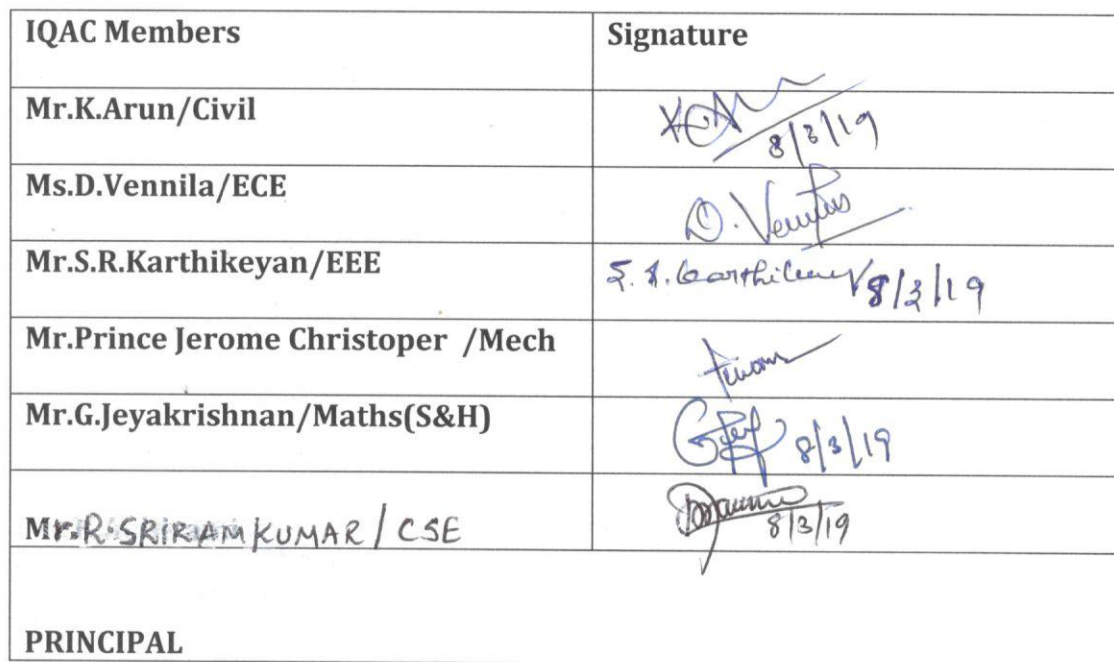 IQAC Members Signature
Mr.K.Arun/Civil 8/3/19
Ms.D.Vennila/ECE D.
Mr.S.R.Karthikeyan/EEE 8/3/19
Mr.Prince Jerome Christoper /Mech
Mr.G.Jeyakrishnan/Maths(S&H) 8/3/19
Mr.R.SRIRAM KUMAR / CSE 8/3/19
PRINCIPAL